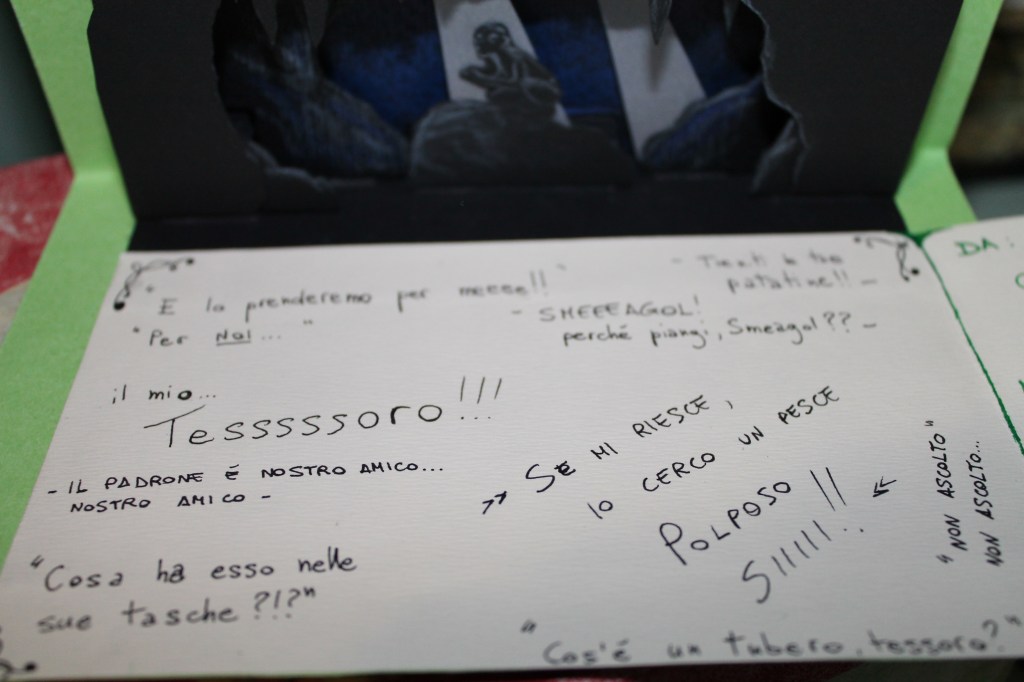 "E lo prenderemo per meeee!!"
"Per NOI..."
- Tieniti le tue
patatine!! -
- SMEEEAGOL!
perché piangi, Smeagol?? -
il mio...
TESSSSSORO!!!
- IL PADRONE È NOSTRO AMICO...
NOSTRO AMICO -
SE MI RIESCE,
IO CERCO UN PESCE
POLPOSO!!
SIIIIII..
"NON ASCOLTO"
NON ASCOLTO...
"Cosa ha esso nelle
sue tasche?!?"
"Cos'é un tubero, tessoro?"
DA: